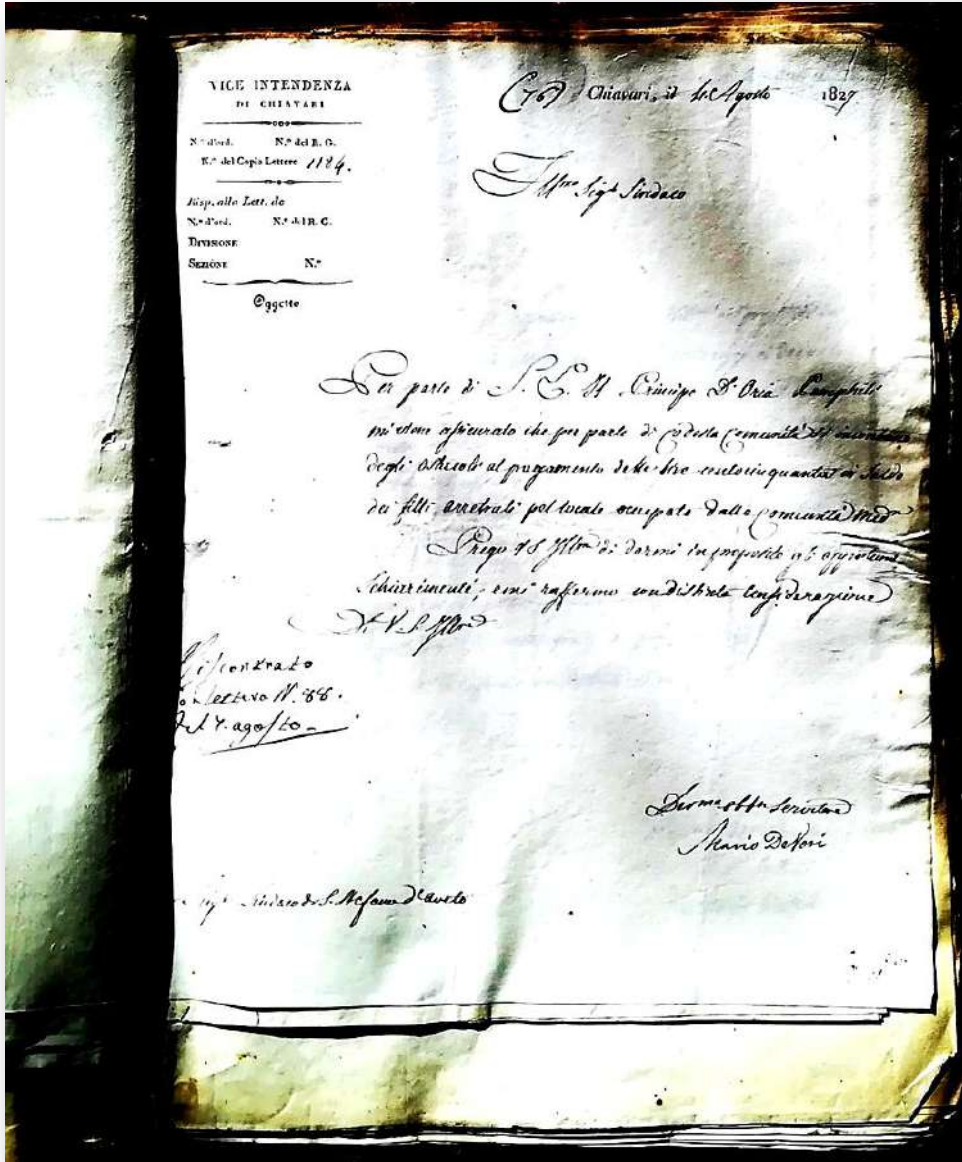 VICE INTENDENZA
DI CHIAVARI
N.° d'ord. N.° del R. G.
N.° del Copia Lettere 1184.
Risp. alla Lett. de
N.° d'ord. N.° del R. G.
DIVISIONE
SEZIONE N.°
Oggetto
(76) Chiavari, il Agosto 1827
Ill.mo Sig.r Sindaco
Per parte di S. E. Il Principe D'Oria Pamphili
mi viene assicurato che per parte di codesta Comunità
degli ostacoli al pagamento delle lire centocinquanta
dei fitti arretrati pel locale occupato dalla Comunità med.
Prego V. S. Ill.ma di darmi in proposito gli opportuni
schiarimenti, e mi raffermo con distinta considerazione
Di V. S. Ill.ma
Riscontrato
Lettera N. 88.
agosto
Servitore
Sindaco di S. Stefano d'aveto